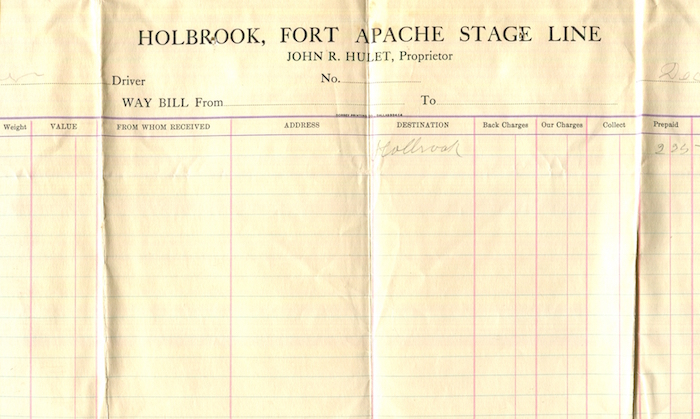 HOLBROOK, FORT APACHE STAGE LINE
JOHN R. HULET, Proprietor
Driver No.
WAY BILL From To
Weight VALUE FROM WHOM RECEIVED ADDRESS DESTINATION Back Charges Our Charges Collect Prepaid
Holbrook 225